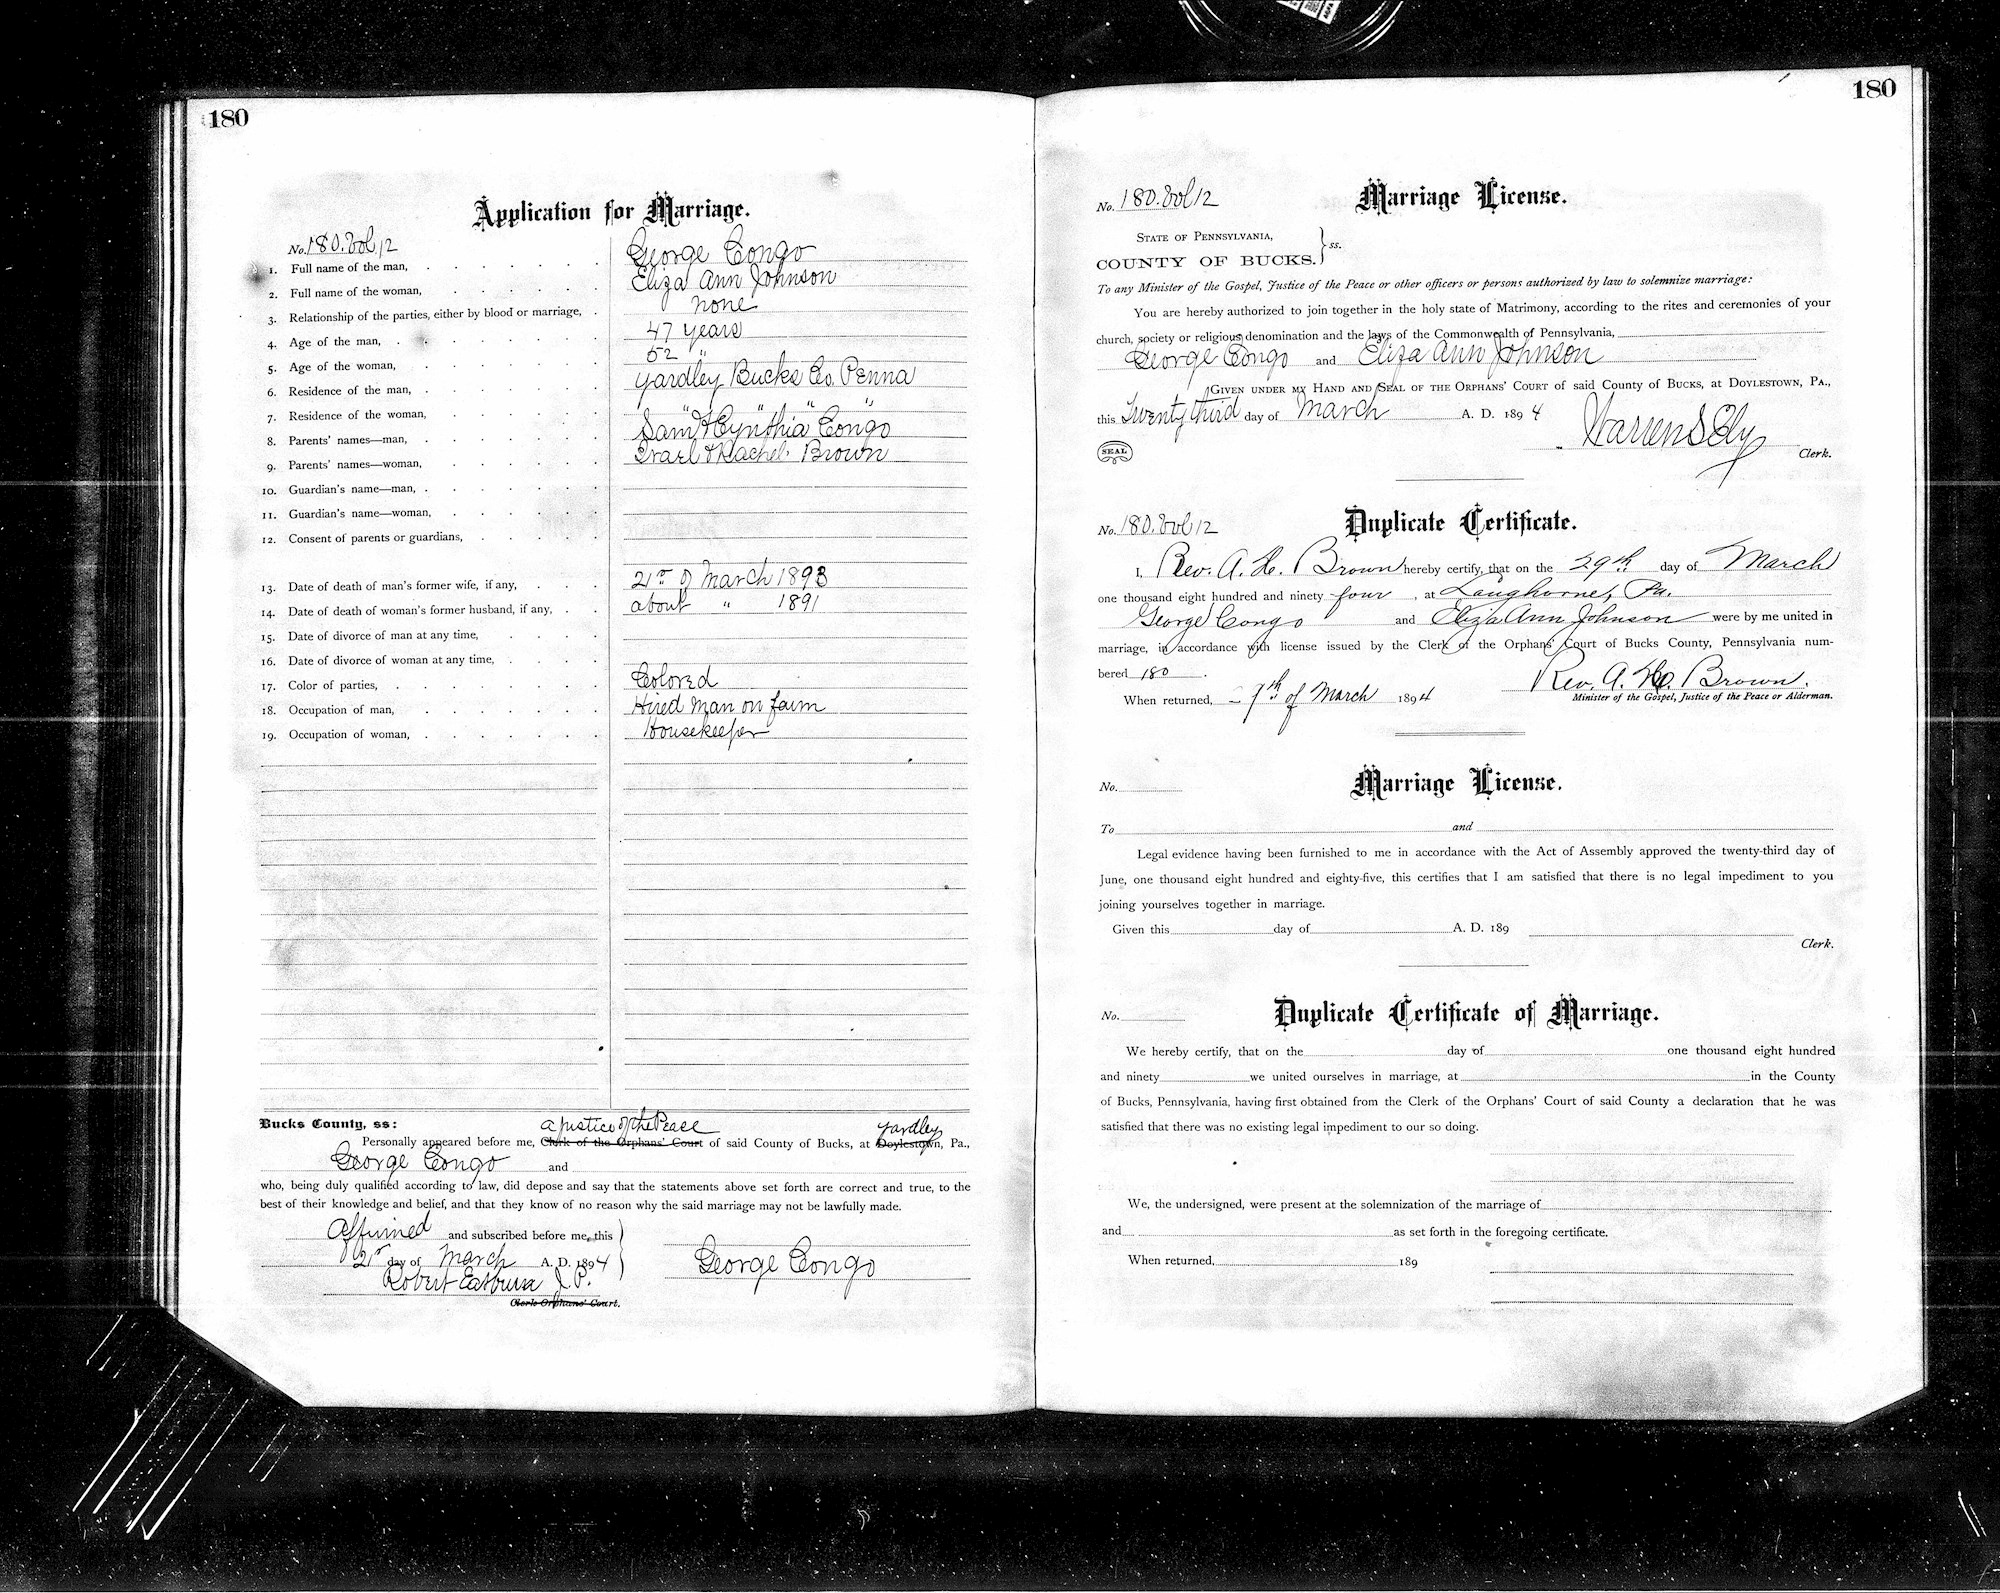 180
Application for Marriage.
No. 180. Vol 12
1. Full name of the man, George Congo
2. Full name of the woman, Eliza Ann Johnson
3. Relationship of the parties, either by blood or marriage, none
4. Age of the man, 47 years
5. Age of the woman, 52 "
6. Residence of the man, Yardley Bucks Co. Penna
7. Residence of the woman, " " " "
8. Parents' names—man, Saml & Cynthia Congo
9. Parents' names—woman, Israel & Rachel Brown
10. Guardian's name—man,
11. Guardian's name—woman,
12. Consent of parents or guardians,
13. Date of death of man's former wife, if any, 21st of March 1893
14. Date of death of woman's former husband, if any, about " 1891
15. Date of divorce of man at any time,
16. Date of divorce of woman at any time,
17. Color of parties, Colored
18. Occupation of man, Hired man on farm
19. Occupation of woman, Housekeeper
Bucks County, ss: a Justice of the Peace Yardley
Personally appeared before me, Clerk of the Orphans' Court of said County of Bucks, at Doylestown, Pa.,
George Congo and
who, being duly qualified according to law, did depose and say that the statements above set forth are correct and true, to the
best of their knowledge and belief, and that they know of no reason why the said marriage may not be lawfully made.
Affirmed and subscribed before me, this
21st day of March A. D. 1894
George Congo
Robert Eastburn J. P.
Clerk Orphans' Court.
180
No. 180. Vol 12 Marriage License.
STATE OF PENNSYLVANIA,
COUNTY OF BUCKS. } ss.
To any Minister of the Gospel, Justice of the Peace or other officers or persons authorized by law to solemnize marriage:
You are hereby authorized to join together in the holy state of Matrimony, according to the rites and ceremonies of your
church, society or religious denomination and the laws of the Commonwealth of Pennsylvania,
George Congo and Eliza Ann Johnson
GIVEN UNDER MY HAND AND SEAL OF THE ORPHANS' COURT of said County of BUCKS, at DOYLESTOWN, PA.,
this Twenty third day of March A. D. 1894 Warren S Ely
SEAL
Clerk.
No. 180. Vol 12 Duplicate Certificate.
I, Rev. A. H. Brown hereby certify, that on the 29th day of March
one thousand eight hundred and ninety four, at Langhorne, Pa.
George Congo and Eliza Ann Johnson were by me united in
marriage, in accordance with license issued by the Clerk of the Orphans' Court of Bucks County, Pennsylvania num-
bered 180. Rev. A. H. Brown.
Minister of the Gospel, Justice of the Peace or Alderman.
When returned, of March 1894
Marriage License.
No.
To and
Legal evidence having been furnished to me in accordance with the Act of Assembly approved the twenty-third day of
June, one thousand eight hundred and eighty-five, this certifies that I am satisfied that there is no legal impediment to you
joining yourselves together in marriage.
Given this day of A. D. 189
Clerk.
No. Duplicate Certificate of Marriage.
We hereby certify, that on the day of one thousand eight hundred
and ninety we united ourselves in marriage, at in the County
of Bucks, Pennsylvania, having first obtained from the Clerk of the Orphans' Court of said County a declaration that he was
satisfied that there was no existing legal impediment to our so doing.
We, the undersigned, were present at the solemnization of the marriage of
and as set forth in the foregoing certificate.
When returned, 189